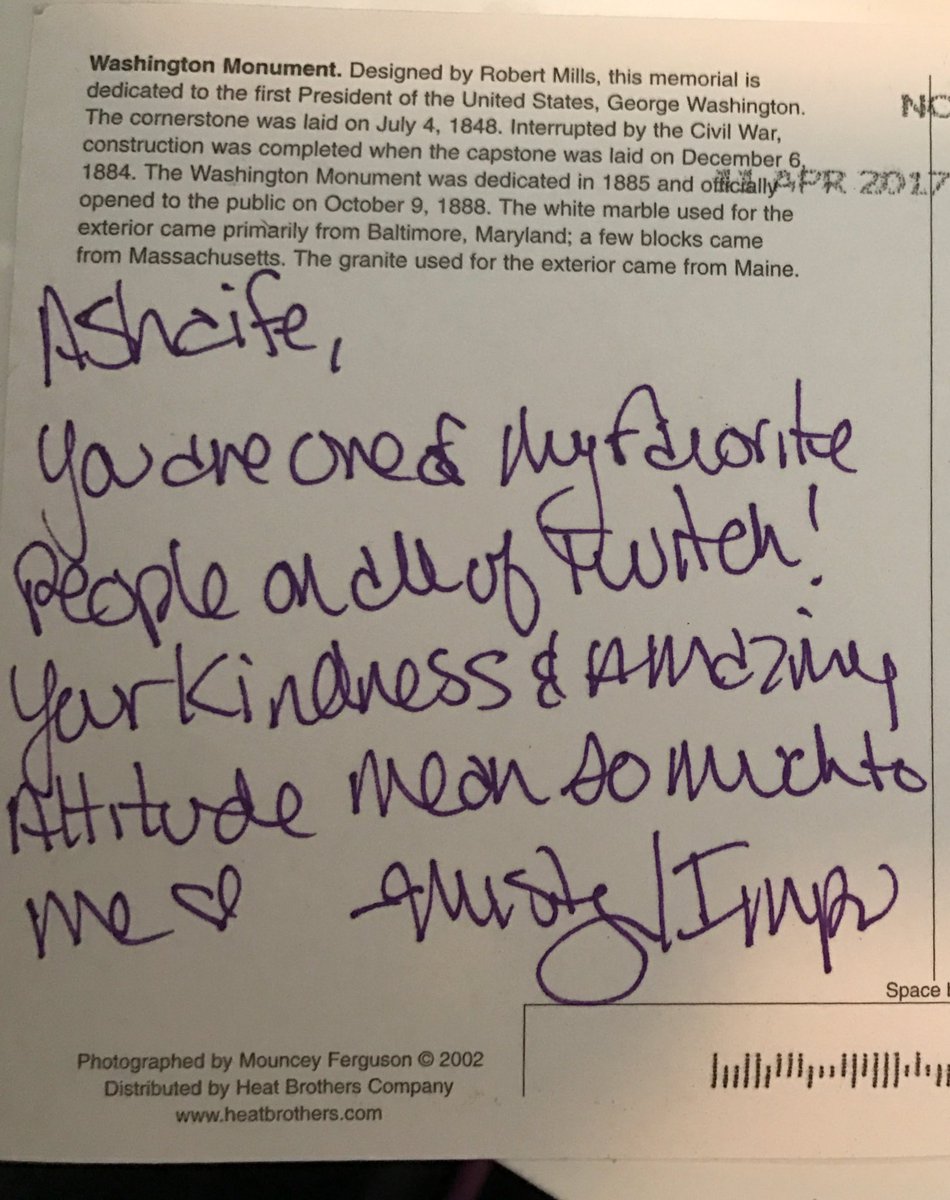 Washington Monument. Designed by Robert Mills, this memorial is
dedicated to the first President of the United States, George Washington.
The cornerstone was laid on July 4, 1848. Interrupted by the Civil War,
construction was completed when the capstone was laid on December 6,
1884. The Washington Monument was dedicated in 1885 and officially
opened to the public on October 9, 1888. The white marble used for the
exterior came primarily from Baltimore, Maryland; a few blocks came
from Massachusetts. The granite used for the exterior came from Maine.
NO
11 APR 2017
Ashcife,
You are one of my favorite
People on all of Twitch!
Your Kindness & Amazing
Attitude mean so much to
me ♡ -Misty/Imp
Space
Photographed by Mouncey Ferguson © 2002
Distributed by Heat Brothers Company
www.heatbrothers.com